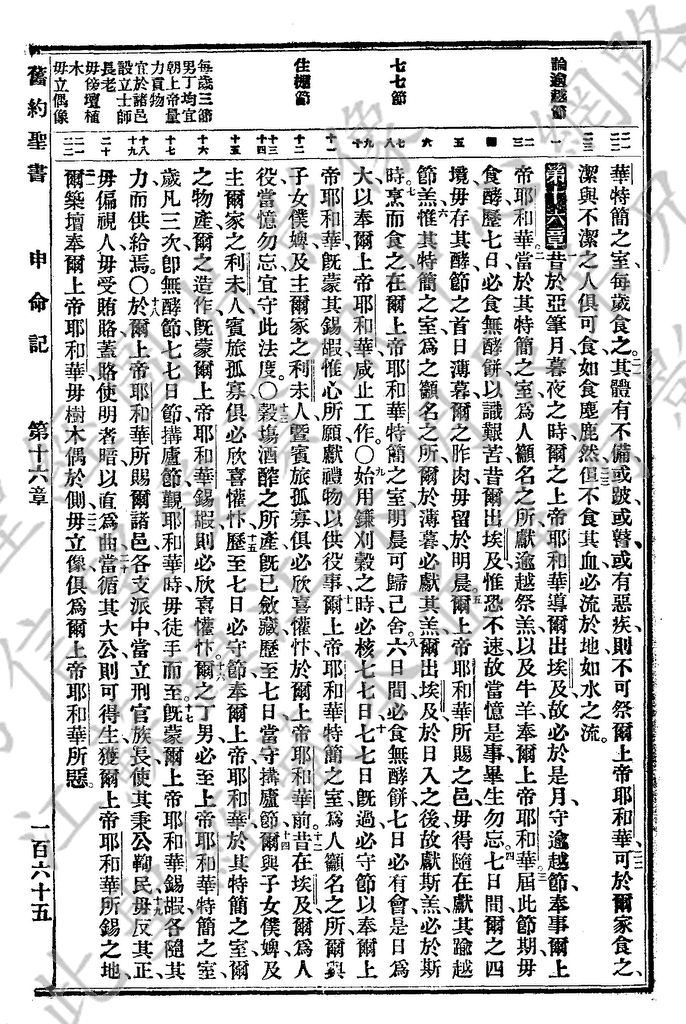 論逾越節
七七節
住棚節
每歲三節
男丁均宜
朝上帝量
力貢物
宜於諸邑
設立士師
長老
毋傍壇植
木
毋立偶像
華特簡之室每歲食之其體有不備或跛或瞽或有惡疾則不可祭爾上帝耶和華可於爾家食之
潔與不潔之人俱可食如食麈鹿然但不食其血必流於地如水之流
第十六章昔於亞筆月暮夜之時爾之上帝耶和華導爾出埃及故必於是月守逾越節奉事爾上
帝耶和華當於其特簡之室爲人籲名之所獻逾越祭羔以及牛羊奉爾上帝耶和華屆此節期毋
食酵歷七日必食無酵餅以識艱苦昔爾出埃及惟恐不速故當憶是事畢生勿忘七日間爾之四
境毋存其酵節之首日薄暮爾之胙肉毋留於明晨爾上帝耶和華所賜之邑毋得隨在獻其踰越
節羔惟其特簡之室爲之籲名之所爾於薄暮必獻其羔爾出埃及於日入之後故獻斯羔必於斯
時烹而食之在爾上帝耶和華特簡之室明晨可歸己舍六日間必食無酵餅七日必有會是日爲
大以奉爾上帝耶和華咸止工作〇始用鐮刈穀之時必核七七日七七日旣過必守節以奉爾上
帝耶和華旣蒙其錫嘏惟心所願獻禮物以供役事爾上帝耶和華特簡之室爲人籲名之所爾與
子女僕婢及主爾家之利未人曁賓旅孤寡俱必欣喜懽忭於爾上帝耶和華前昔在埃及爾爲人
役當憶勿忘宜守此法度〇穀塲酒醡之所產旣已斂藏歷至七日當守搆廬節爾與子女僕婢及
主爾家之利未人賓旅孤寡俱必欣喜懽忭歷至七日必守節奉爾上帝耶和華於其特簡之室爾
之物產爾之造作旣蒙爾上帝耶和華錫嘏則必欣喜懽忭爾之丁男必至上帝耶和華特簡之室
歲凡三次卽無酵節七七日節搆廬節覲耶和華時毋徒手而至旣蒙爾上帝耶和華錫嘏各隨其
力而供給焉〇於爾上帝耶和華所賜爾諸邑各支派中當立刑官族長使其秉公鞫民毋反其正
毋偏視人毋受賄賂蓋賂使明者暗以直爲曲當循其大公則可得生獲爾上帝耶和華所錫之地
爾築壇奉爾上帝耶和華毋樹木偶於側毋立像俱爲爾上帝耶和華所惡
舊約聖書 申命記 第十六章 一百六十五